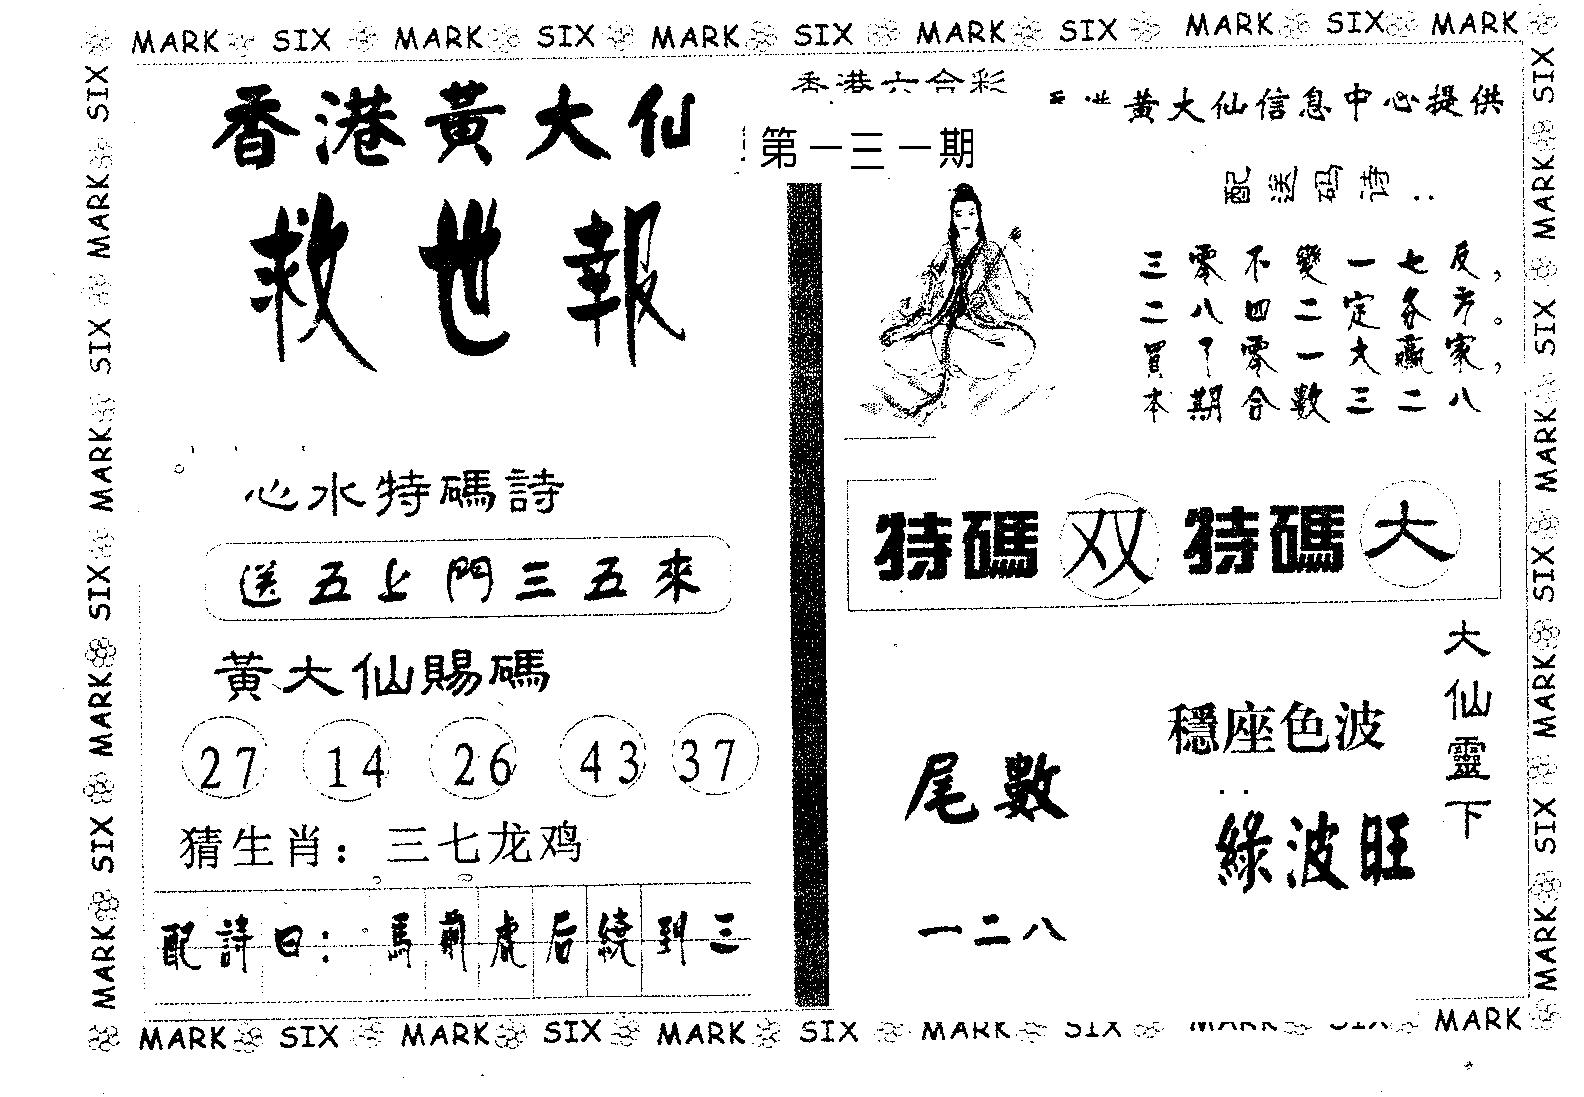 MARK SIX MARK SIX MARK SIX MARK SIX MARK SIX MARK
香港黃大仙
救世報
心水特碼詩
送五上門三五來
黃大仙賜碼
27 14 26 43 37
猜生肖：三七龙鸡
配詩曰：馬前虎后繞到三
香港六合彩
第一三一期
黃大仙信息中心提供
配送码诗
三零不變一七反，
二八四二定各方。
買了零一大贏家，
本期合數三二八
特碼双 特碼大
尾數
一二八
穩座色波
綠波旺
大仙靈下
SIX MARK SIX MARK SIX MARK SIX MARK
SIX MARK SIX MARK SIX MARK SIX MARK
MARK SIX MARK SIX MARK SIX MARK SIX MARK SIX MARK